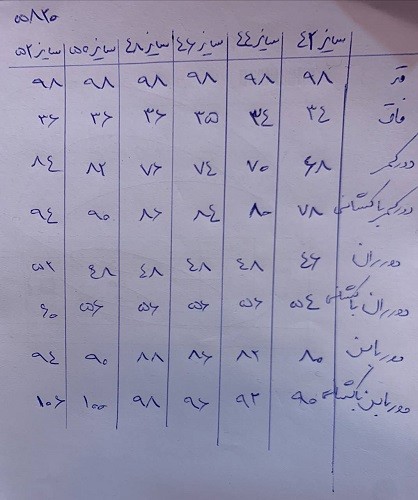 ۵۵۸۲۰
سایز ۴۲ سایز ۴۴ سایز ۴۶ سایز ۴۸ سایز ۵۰ سایز ۵۲
قد ۹۸ ۹۸ ۹۸ ۹۸ ۹۸ ۹۸
فاق ۳۴ ۳۴ ۳۵ ۳۶ ۳۶ ۳۶
دور کمر ۶۸ ۷۰ ۷۴ ۷۶ ۸۲ ۸۴
دور کمر با کشسانی ۷۸ ۸۰ ۸۴ ۸۶ ۹۰ ۹۴
دور ران ۴۶ ۴۸ ۴۸ ۴۸ ۴۸ ۵۲
دور ران با کشسانی ۵۴ ۵۶ ۵۶ ۵۶ ۵۶ ۶۰
دور باسن ۸۰ ۸۲ ۸۶ ۸۸ ۹۰ ۹۴
دور باسن با کشسانی ۹۰ ۹۲ ۹۶ ۹۸ ۱۰۰ ۱۰۶